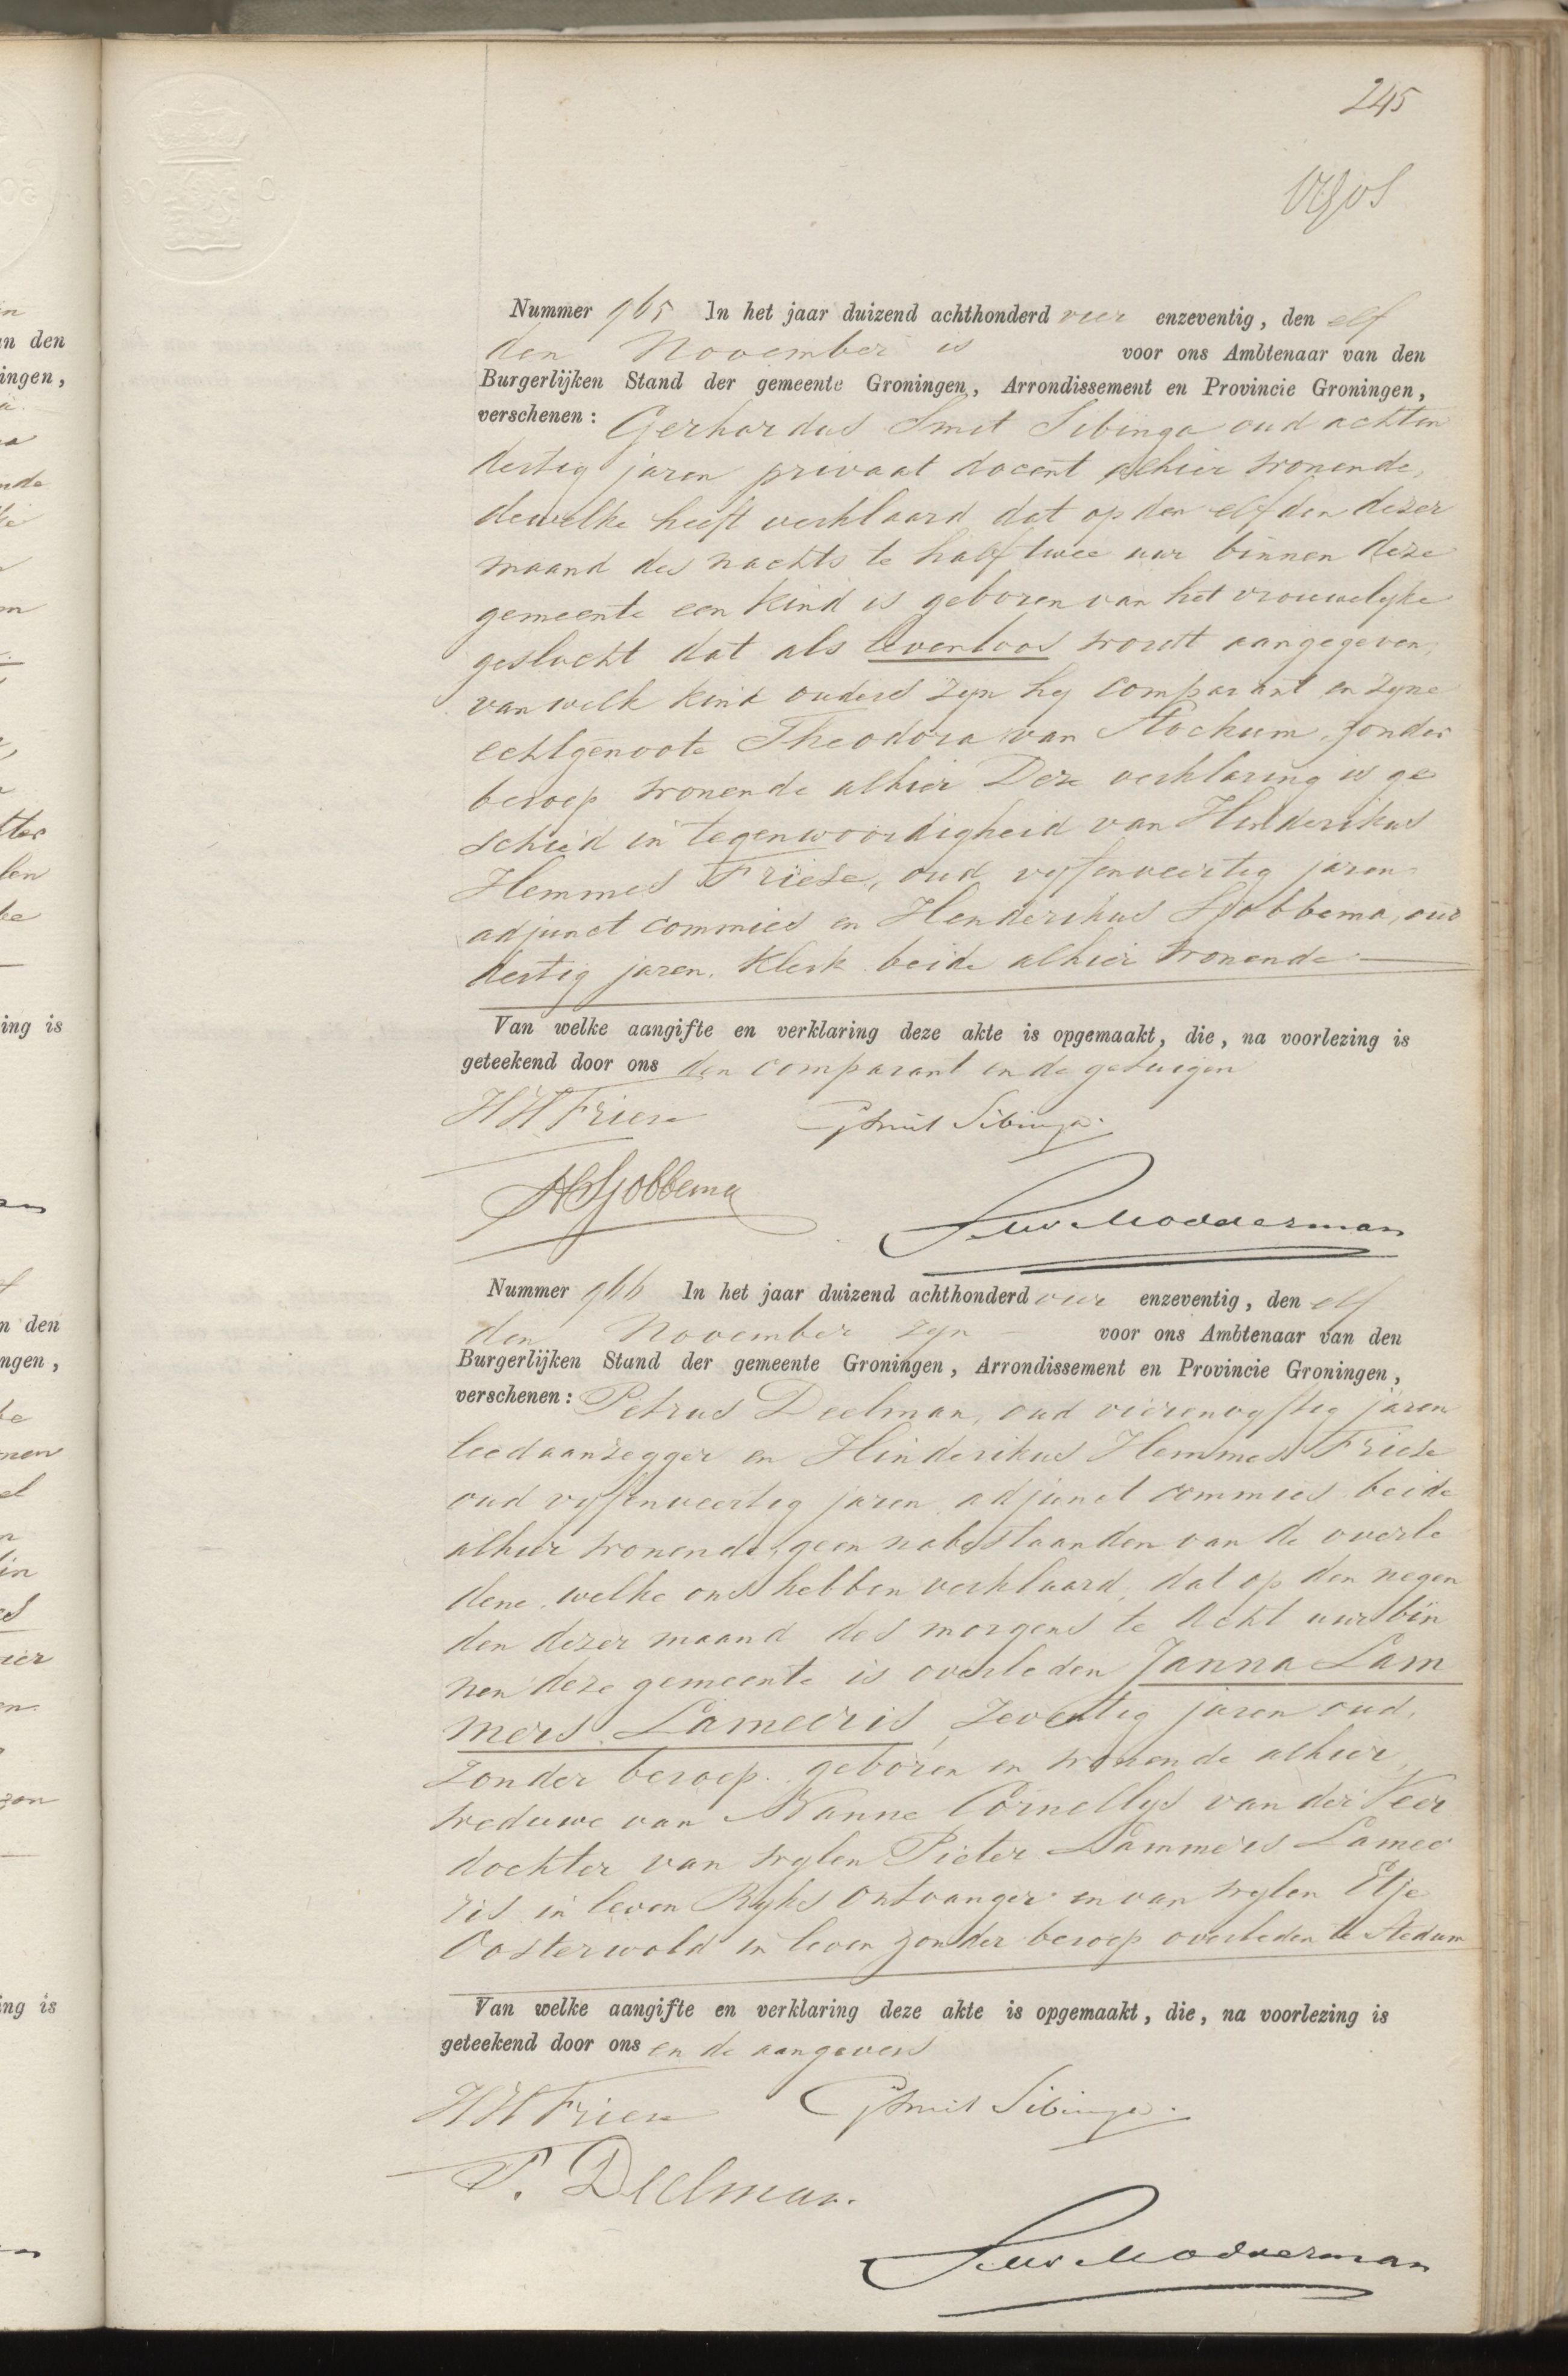 245
Nummer 965 In het jaar duizend achthonderd vier enzeventig, den elf
den November is voor ons Ambtenaar van den
Burgerlijken Stand der gemeente Groningen, Arrondissement en Provincie Groningen,
verschenen: Gerhardus Smit Sibinga oud achten
dertig jaren privaat docent alhier wonende,
dewelke heeft verklaard dat op den elfden dezer
maand des nachts te half twee uur binnen deze
gemeente een kind is geboren van het vrouwelijke
geslacht dat als levenloos wordt aangegeven,
van welk kind ouders zyn hy comparant en zyne
echtgenoote Theodora van Stockum, zonder
beroep wonende alhier Deze verklaring is ge
schied in tegenwoordigheid van Hinderikus
Hemmes Friese, oud vyfenveertig jaren
adjunct commies en Henderikus Sjobbema, oud
dertig jaren, klerk beide alhier wonende
Van welke aangifte en verklaring deze akte is opgemaakt, die, na voorlezing is
geteekend door ons den comparant en de getuigen
HH Friese GSmit Sibinga.
HSjobbema
Modderman
Nummer 966 In het jaar duizend achthonderd vier enzeventig, den elf
den November zyn voor ons Ambtenaar van den
Burgerlijken Stand der gemeente Groningen, Arrondissement en Provincie Groningen,
verschenen: Petrus Deelman, oud vierenvyftig jaren
leedaanzegger en Hinderikus Hemmes Friese
oud vyfenveertig jaren adjunct commies beide
alhier wonende, geen nabestaanden van de overle
dene, welke ons hebben verklaard, dat op den negen
den dezer maand des morgens te acht uur bin
nen deze gemeente is overleden Janna Lam
mers Lameeris, zeventig jaren oud,
zonder beroep, geboren en wonende alhier,
weduwe van Nanne Cornellys van der Veer
dochter van wylen Pieter Lammers Lamee
ris in leven Ryks Ontvanger en van wylen Etje
Oosterwold in leven zonder beroep overleden te Stedum
Van welke aangifte en verklaring deze akte is opgemaakt, die, na voorlezing is
geteekend door ons en de aangevers
HH Friese GSmit Sibinga.
P. Deelman.
Modderman